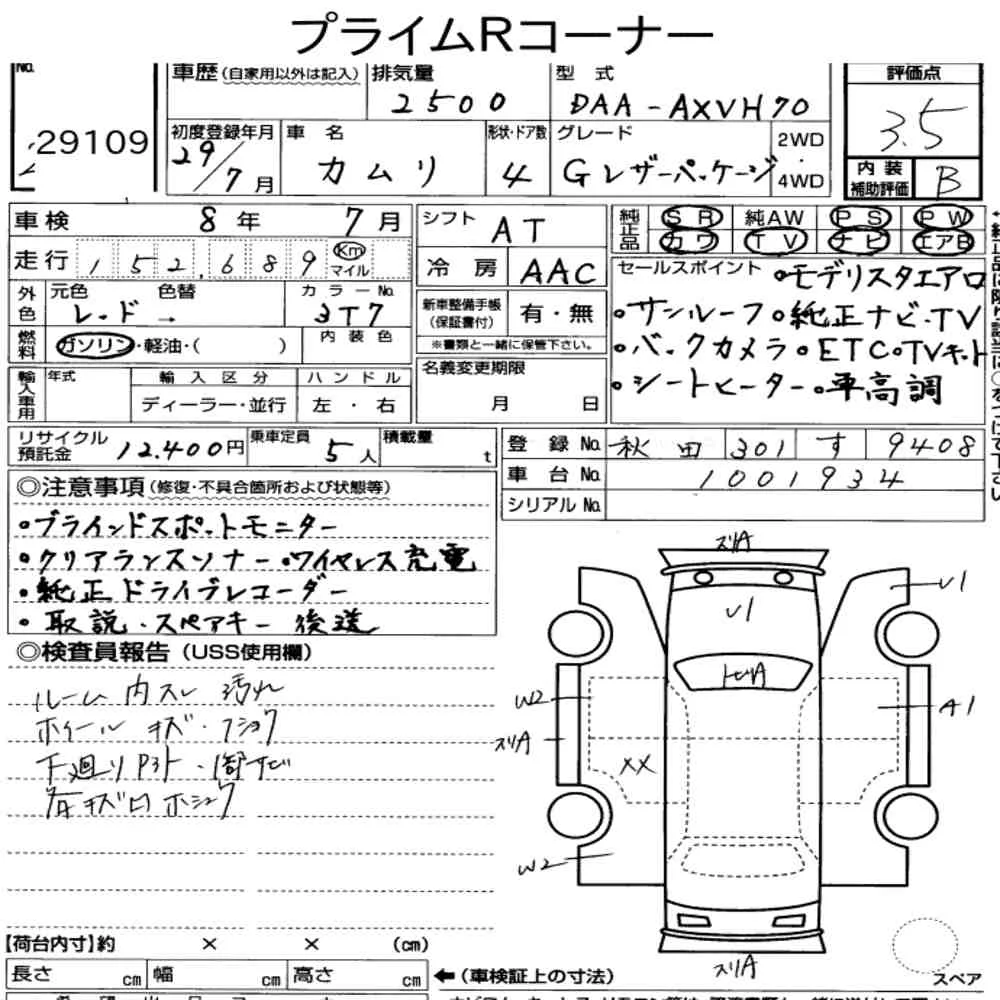 プライムRコーナー
No. 29109
車歴(自家用以外は記入)
排気量 2500
型式 DAA-AXVH70
評価点 3.5
初度登録年月 29/7月
車名 カムリ
形状・ドア数 4
グレード Gレザーパッケージ
2WD・4WD
内装補助評価 B
車検 8年 7月
走行 152,689 Km マイル
外色 元色 レッド 色替 → カラーNo. 3T7
燃料 ガソリン・軽油・( ) 内装色
輸入車用 年式 輸入区分 ハンドル
ディーラー・並行 左・右
シフト AT
冷房 AAC
新車整備手帳(保証書付) 有・無
※書類と一緒に保管下さい。
名義変更期限
月 日
純正品 SR 純AW PS PW
カワ TV ナビ エアB
セールスポイント •モデリスタエアロ
•サンルーフ•純正ナビ・TV
•バックカメラ•ETC•TVキット
•シートヒーター•車高調
リサイクル預託金 12.400円 乗車定員 5人 積載量 t
登録No. 秋田 301 す 9408
車台No. 1001934
シリアルNo.
◎注意事項(修復・不具合箇所および状態等)
•ブラインドスポットモニター
•クリアランスソナー•ワイヤレス充電
•純正ドライブレコーダー
•取説・スペアキー後送
◎検査員報告(USS使用欄)
ルーム内スレ 汚れ
ホイール キズ・フショク
下廻り
スリA
U1
U1
トビA
W2
A1
スリA
XX
W2
スリA
スペア
【荷台内寸】約 × × (cm)
長さ cm 幅 cm 高さ cm ←(車検証上の寸法)